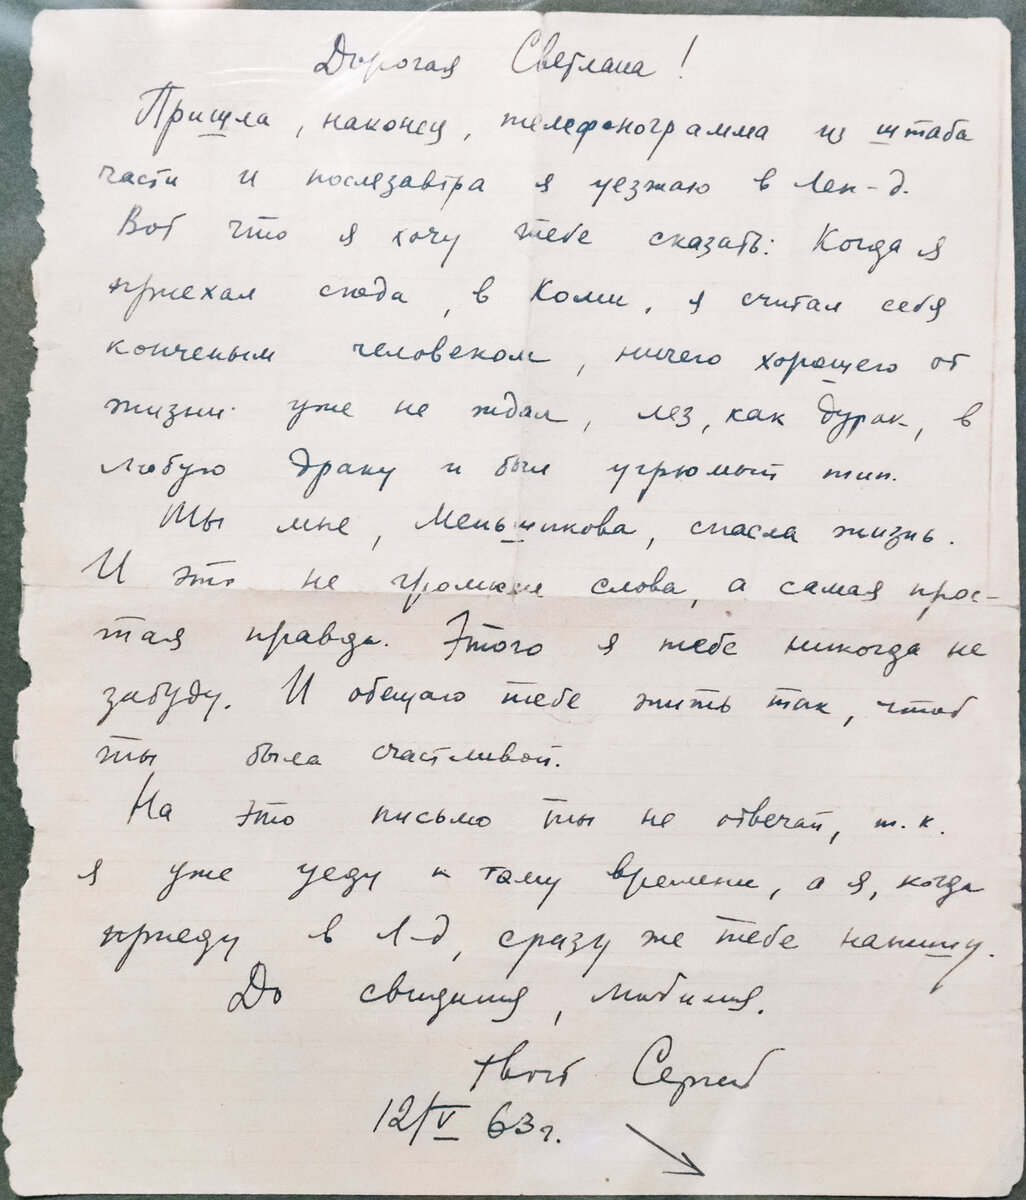 Дорогая Светлана!
Пришла, наконец, телефонограмма из штаба
части и послезавтра я уезжаю в Лен-д.
Вот что я хочу тебе сказать: Когда я
приехал сюда, в Коми, я считал себя
конченым человеком, ничего хорошего от
жизни уже не ждал, лез, как дурак, в
любую драку и был угрюмый тип.
Ты мне, Меньшикова, спасла жизнь.
И это не громкие слова, а самая прос-
тая правда. Этого я тебе никогда не
забуду. И обещаю тебе жить так, чтоб
ты была счастливой.
На это письмо ты не отвечай, т.к.
я уже уеду к тому времени, а я, когда
приеду в Л-д, сразу же тебе напишу.
До свидания, любимая.
твой Сергей
12/V 63 г.